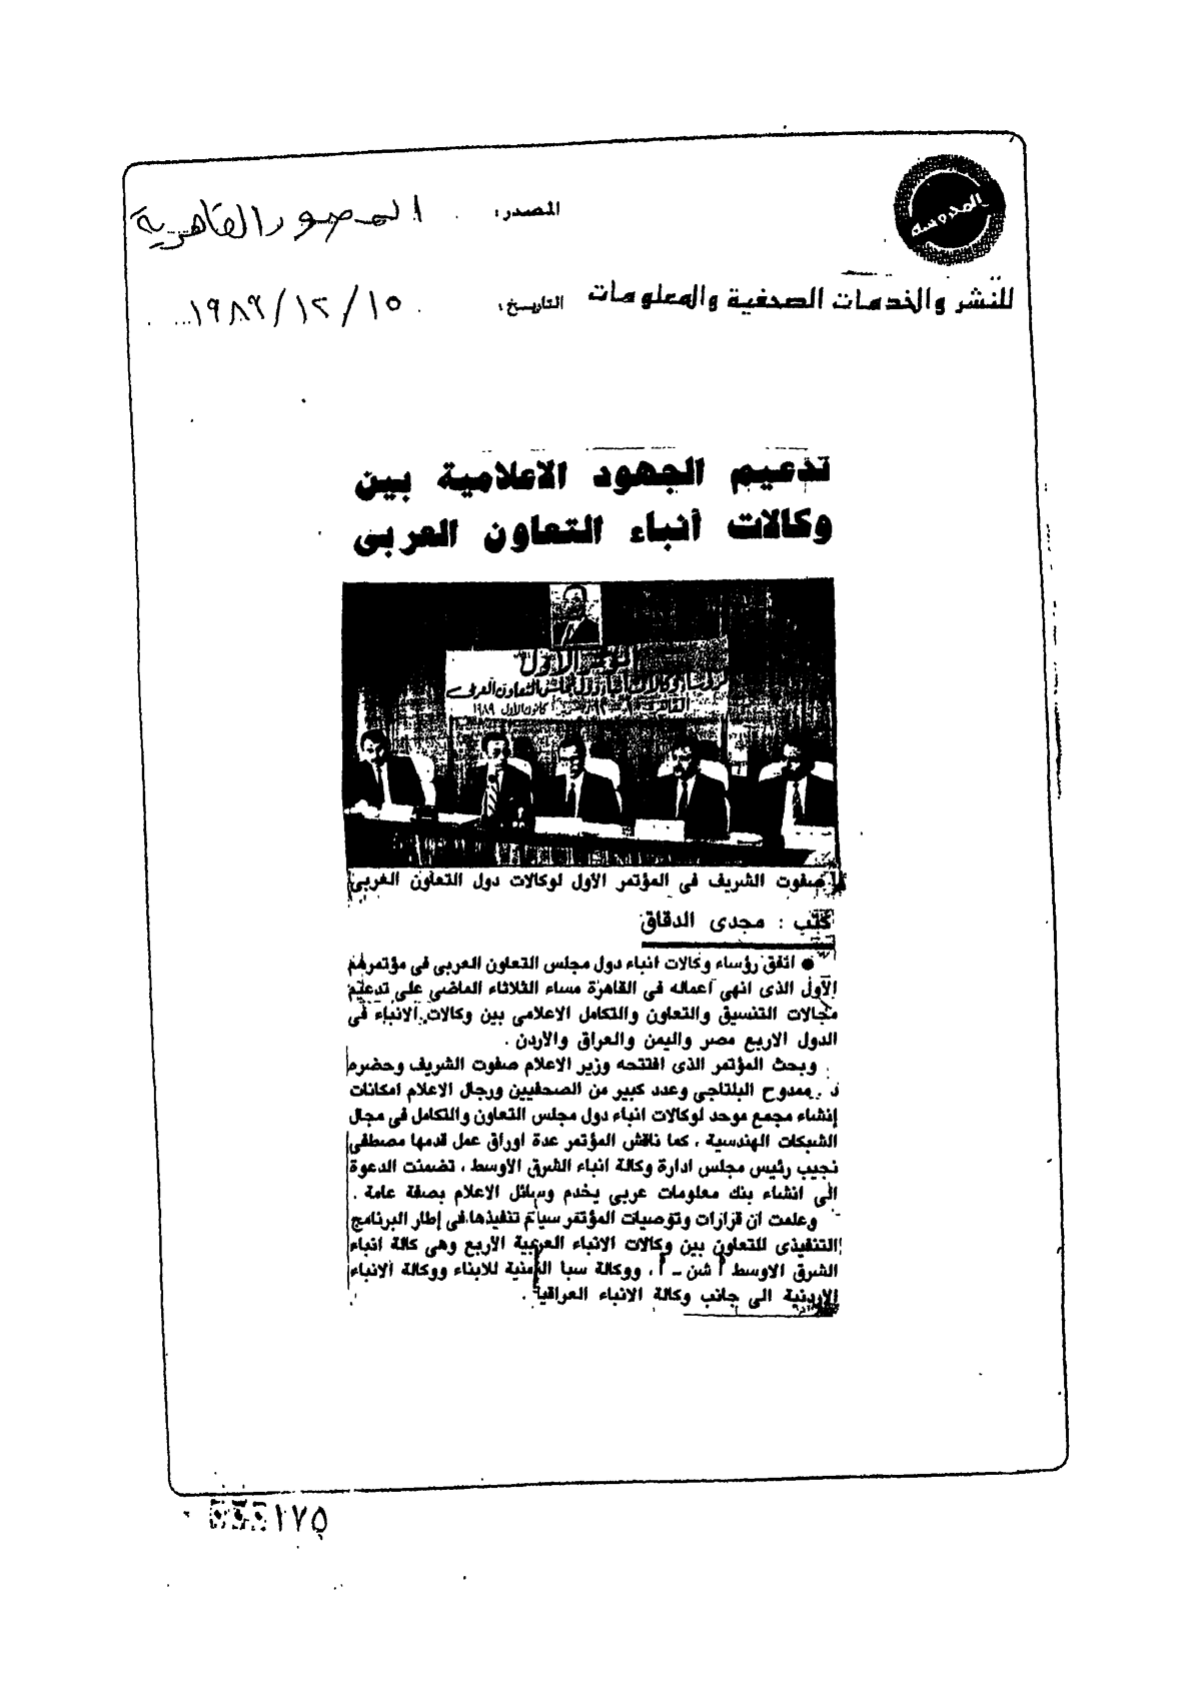 المحروسة
المصدر: المصور القاهرية
للنشر والخدمات الصحفية والمعلومات
التاريخ: ١٥/١٢/١٩٨٩
تدعيم الجهود الاعلامية بين
وكالات أنباء التعاون العربى
الأول
وكالات أنباء دول مجلس التعاون العربى
كانون الاول ١٩٨٩
صفوت الشريف فى المؤتمر الأول لوكالات دول التعاون العربى
كتب : مجدى الدقاق
● اتفق رؤساء وكالات انباء دول مجلس التعاون العربى فى مؤتمرهم
الأول الذى انهى أعماله فى القاهرة مساء الثلاثاء الماضى على تدعيم
مجالات التنسيق والتعاون والتكامل الاعلامى بين وكالات الانباء فى
الدول الاربع مصر واليمن والعراق والأردن .
وبحث المؤتمر الذى افتتحه وزير الاعلام صفوت الشريف وحضره
د . ممدوح البلتاجى وعدد كبير من الصحفيين ورجال الاعلام امكانات
إنشاء مجمع موحد لوكالات انباء دول مجلس التعاون والتكامل فى مجال
الشبكات الهندسية ، كما ناقش المؤتمر عدة اوراق عمل قدمها مصطفى
نجيب رئيس مجلس ادارة وكالة انباء الشرق الأوسط ، تضمنت الدعوة
الى انشاء بنك معلومات عربى يخدم وسائل الاعلام بصفة عامة .
وعلمت ان قرارات وتوصيات المؤتمر سيتم تنفيذها فى إطار البرنامج
التنفيذى للتعاون بين وكالات الانباء العربية الأربع وهى كالة انباء
الشرق الاوسط أ شن ـ أ ، ووكالة سبا اليمنية للابناء ووكالة الانباء
الاردنية الى جانب وكالة الانباء العراقية .
١٧٥